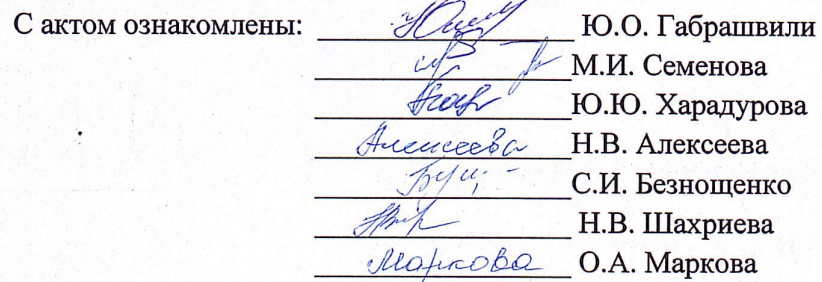 С актом ознакомлены: Ю.О. Габрашвили
М.И. Семенова
Ю.Ю. Харадурова
Алексеева Н.В. Алексеева
С.И. Безнощенко
Н.В. Шахриева
Маркова О.А. Маркова